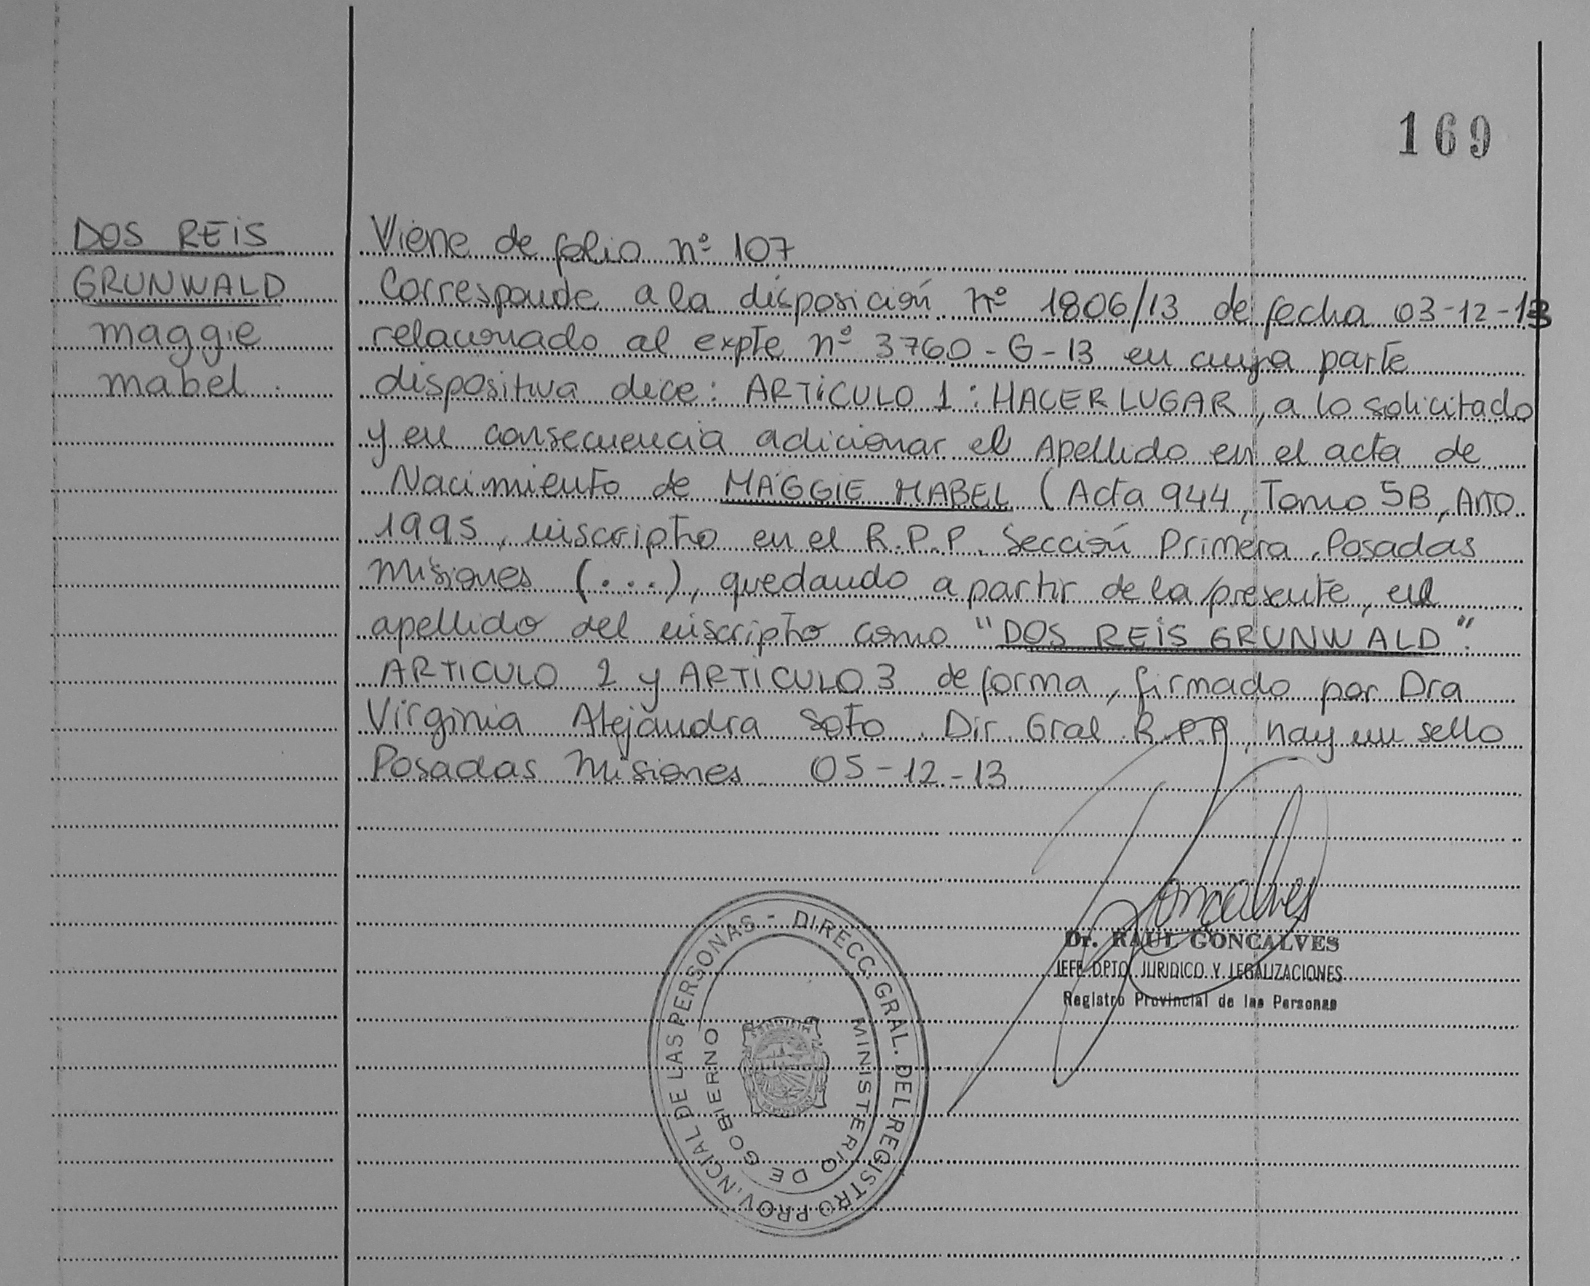 169
DOS REIS
GRUNWALD
Maggie
Mabel.
Viene de folio nº 107
Corresponde a la disposición nº 1806/13 de fecha 03-12-13
relacionado al expte nº 3760-G-13 en cuya parte
dispositiva dice: ARTICULO 1: HACER LUGAR, a lo solicitado
y en consecuencia adicionar el Apellido en el acta de
Nacimiento de MAGGIE MABEL (Acta 944, Tomo 5B, Año
1995, inscripto en el R.P.P. Sección Primera, Posadas
Misiones (....), quedando a partir de la presente, el
apellido del inscripto como "DOS REIS GRUNWALD".
ARTICULO 2 y ARTICULO 3 de forma, firmado por Dra
Virginia Alejandra Soto. Dir. Gral. R.P.P, hay un sello
Posadas Misiones 05-12-13
Goncalves
Dr. RAUL GONCALVES
JEFE DPTO. JURIDICO Y LEGALIZACIONES
Registro Provincial de las Personas
DIRECC. GRAL. DEL REGISTRO PROVINCIAL DE LAS PERSONAS -
MINISTERIO DE GOBIERNO